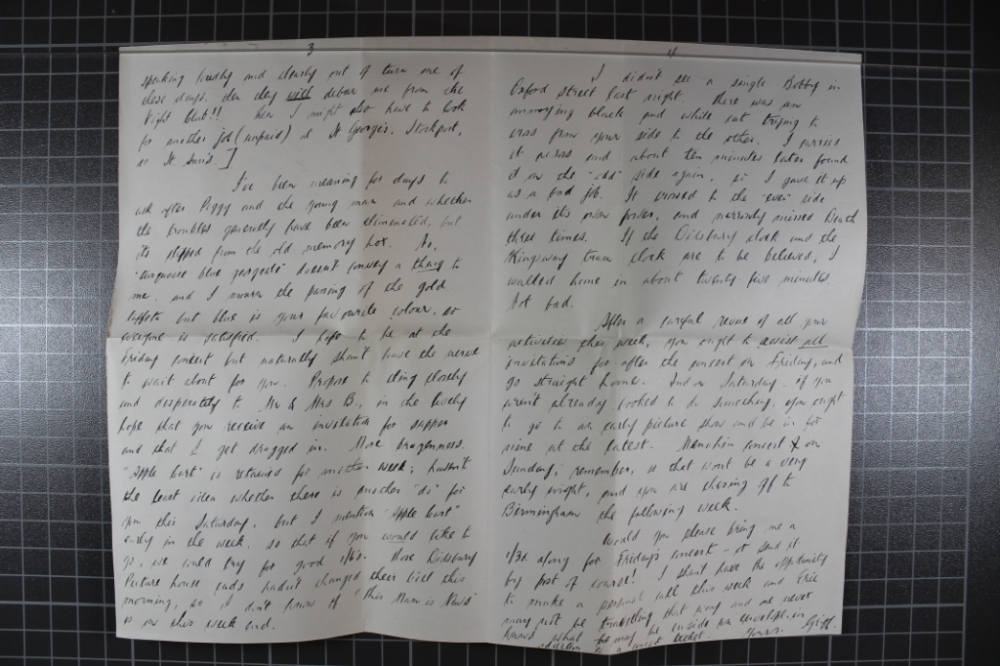 3
speaking loudly and clearly out of turn one of
these days, then they will debar me from the
right blest!! Then I might also have to look
for another job (unpaid) at St George's, Stockport,
or St.
I've been meaning for days to
ask after Peggy and the young man and whether
the troubles generally have been eliminated, but
its slipped from the old memory box. No,
"turquoise blue georgette" doesn't convey a thing to
me, and I mourn the passing of the gold
taffeta but blue is your favourite colour, so
everyone is satisfied. I hope to be at the
Friday concert but naturally shan't have the nerve
to wait about for you. Propose to cling closely
and desperately to Mr & Mrs B., in the lively
hope that you receive an invitation for supper
and that I get dragged in. More brazenness.
"Apple Cart" is retained for another week; haven't
the least idea whether there is another "do" for
you this Saturday, but I mention "Apple Cart"
early in the week, so that if you would like to
go, we could try for good 1/3s. Those Didsbury
Picture House cads hadn't changed their bill this
morning, so I don't know if "This Man is News"
is on this week end.
4
I didn't see a single Bobby in
Oxford Street last night. There was an
annoying black and white cat trying to
cross from your side to the other. I carried
it across and about ten minutes later found
it on the "odd" side again, so I gave it up
as a bad job. It crossed to the "even" side
under its own power, and narrowly missed Death
three times. If the Didsbury clock and the
Kingsway tram clock are to be believed, I
walked home in about twenty five minutes.
Not bad.
After a careful revue of all your
activities this week, you ought to resist all
invitations for after the concert on Friday, and
go straight home. And on Saturday, if you
aren't already booked to do something, you ought
to go to an early picture show and be in for
nine at the latest. Menuhin concert on
Sunday, remember, so that wont be a very
early night, and you are chasing off to
Birmingham the following week.
Would you please bring me a
1/3d along for Friday's concert - or send it
by post of course! I shant have the opportunity
to make a personal call this week and Eric
may not be travelling that way and one never
knows what may be inside an envelope, in
addition to a concert ticket. Yours. Giff.